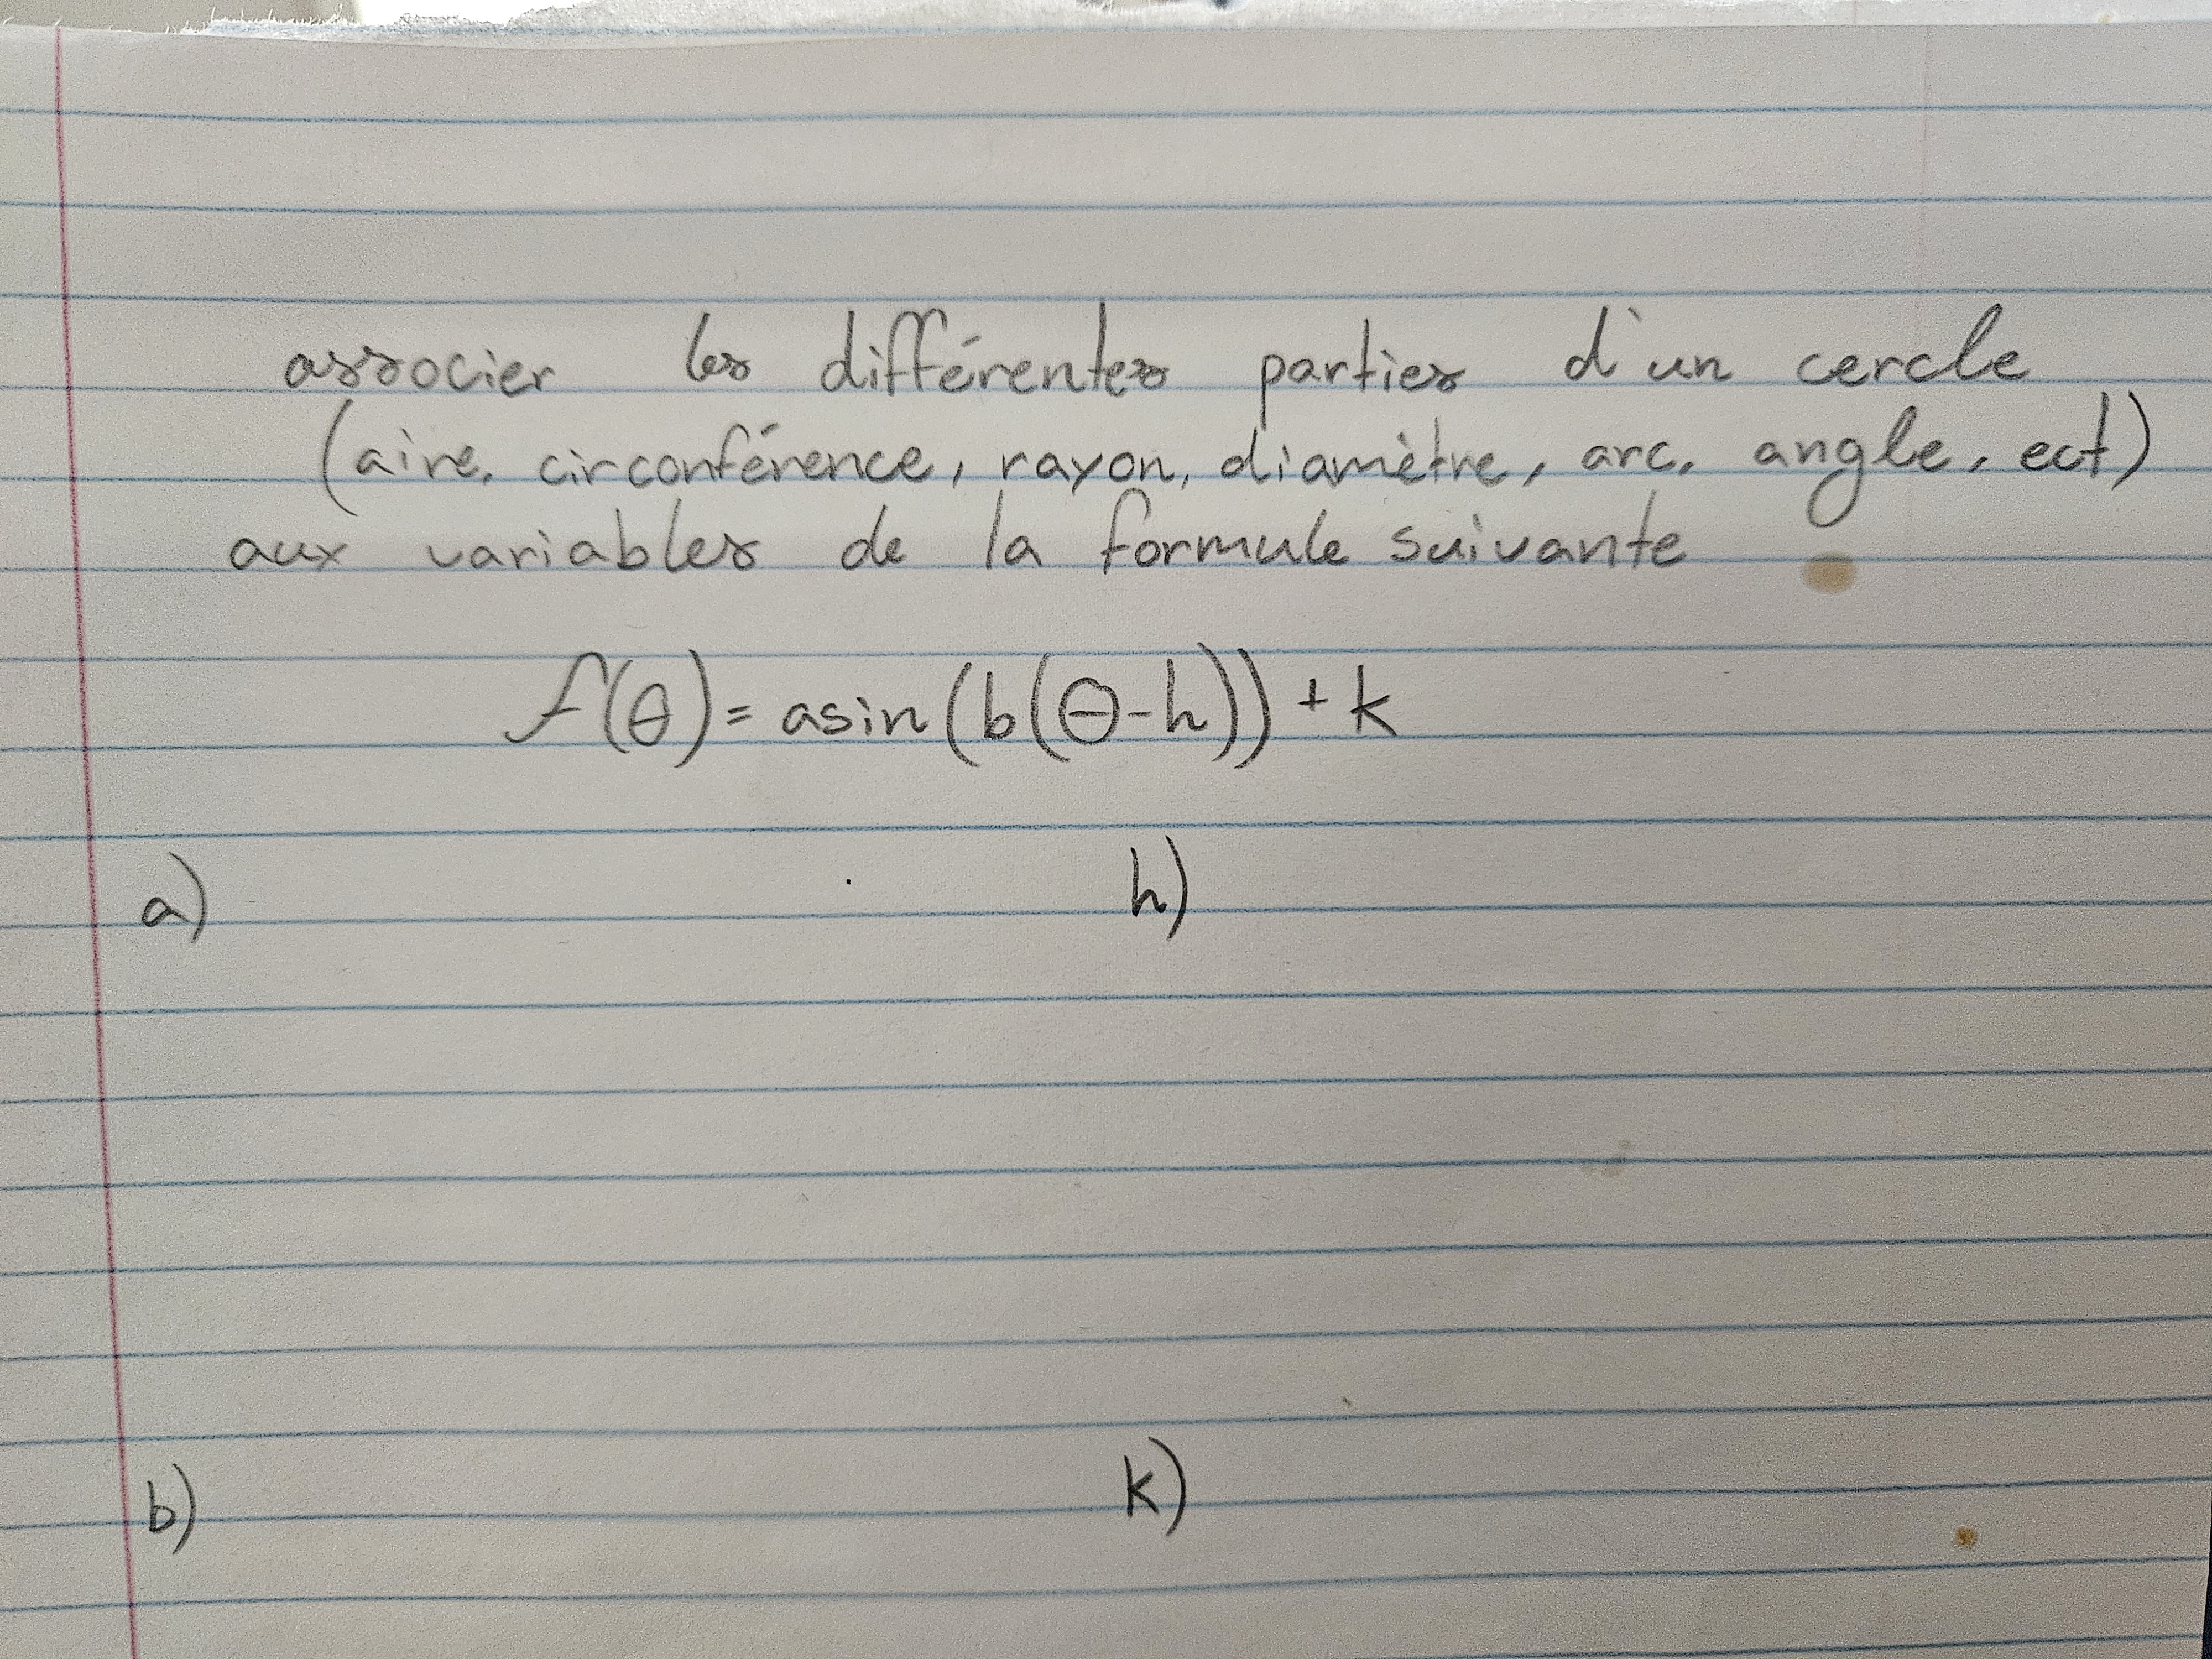 associer les différentes parties d'un cercle
(aire, circonférence, rayon, diamètre, arc, angle, ect)
aux variables de la formule suivante
f(θ) = asin(b(θ-h)) + k
a) h)
b) k)